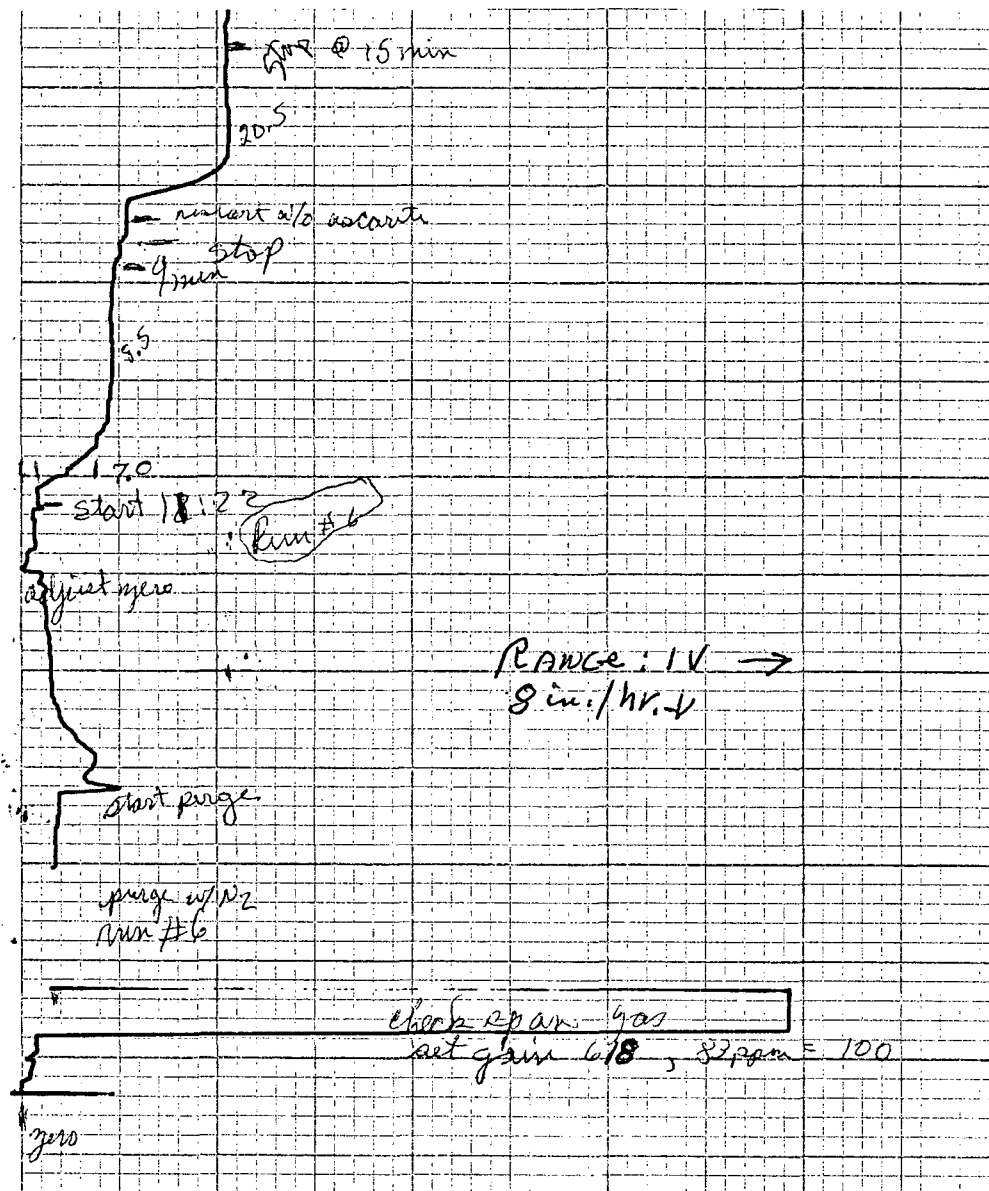 @ 15 min
20.5
restart w/o ascarite
stop
9 min
9.5
7.0
start 11:22
Run #6
adjust zero
RANGE: 1V →
8 in./hr. ↓
start purge
purge w/ N2
run #6
check span gas
set gain 618, 82 ppm = 100
zero